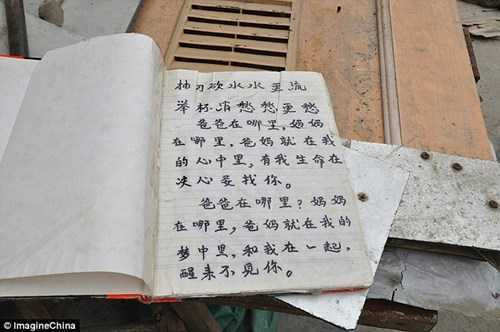 抽刀砍水水更流
举杯消愁愁更愁
爸爸在哪里,妈妈
在哪里,爸妈就在我
的心中里,有我生命在
决心要找你。
爸爸在哪里?妈妈
在哪里,爸妈就在我的
梦中里,和我在一起,
醒来不见你。
© ImagineChina